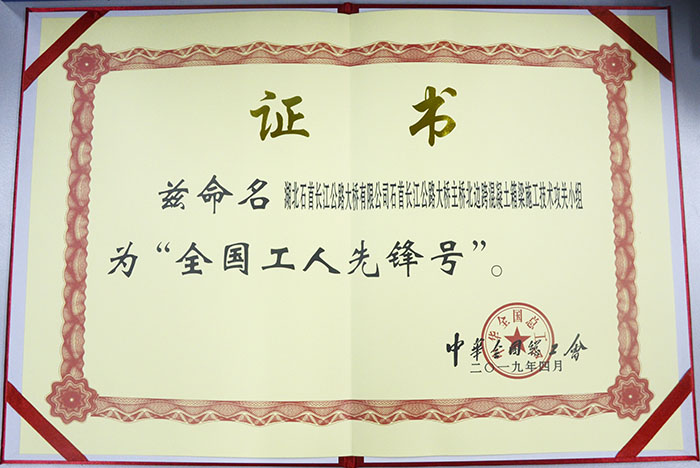 证书
兹命名 湖北石首长江公路大桥有限公司石首长江公路大桥主桥北边跨混凝土箱梁施工技术攻关小组
为“全国工人先锋号”。
中華全国總工會
二〇一九年四月